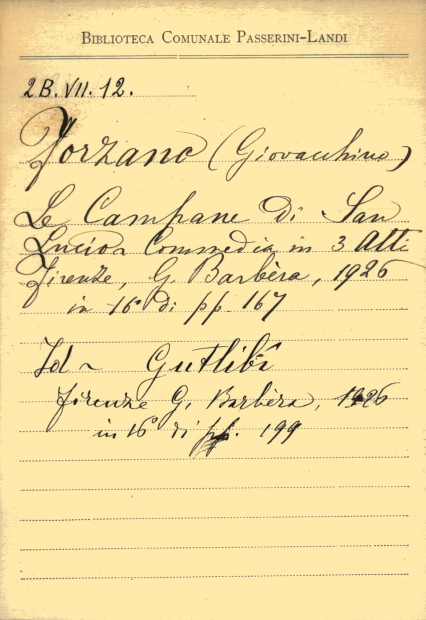 BIBLIOTECA COMUNALE PASSERINI-LANDI
2B.VII.12.
Forzano (Giovacchino)
Le Campane di San
Lucio ~ Commedia in 3 Atti
Firenze, G. Barbèra, 1926
in 16° di pp. 167
Id ~ Gutlibi
Firenze G. Barbèra, 1926
in 16° di pp. 199